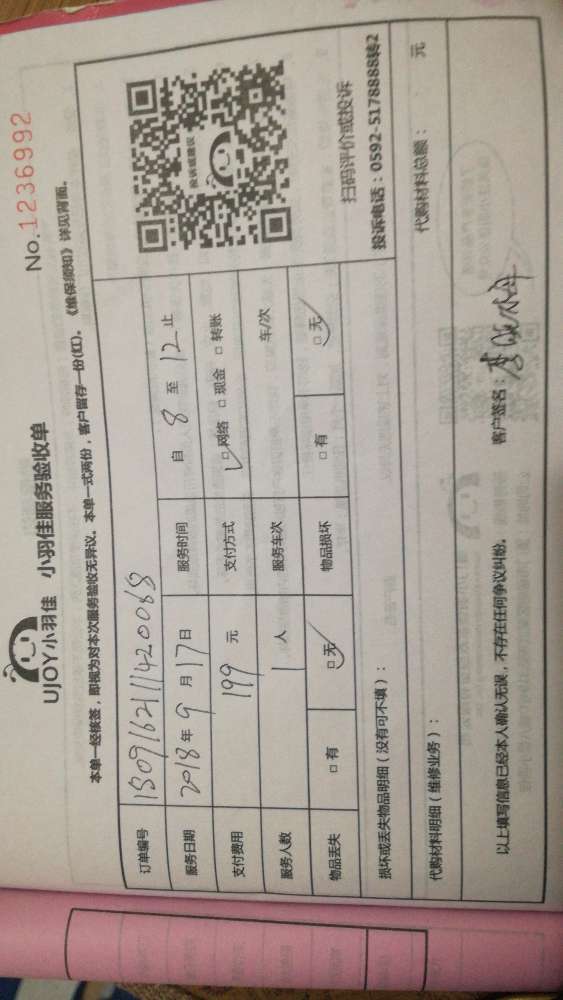 No.1236992
UJOY小羽佳 小羽佳服务验收单
本单一经核签，即视为对本次服务验收无异议。本单一式两份，客户留存一份(红)。《维保须知》详见背面。
订单编号 1809162111420068
服务日期 2018年9月17日 服务时间 自 8 至 12 止
支付费用 199 元 支付方式 □网络 □现金 □转账
服务人数 1 人 服务车次 车/次
物品丢失 □有 □无 物品损坏 □有 □无
投诉或建议
扫码评价或投诉
投诉电话：0592-5178888转2
损坏或丢失物品明细（没有可不填）：
代购材料明细（维修业务）： 代购材料总额： 元
以上填写信息已经本人确认无误，不存在任何争议纠纷。 客户签名：